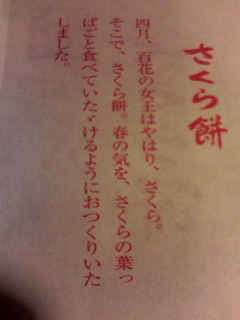 さくら餅
四月、百花の女王はやはり、さくら。
そこで、さくら餅。春の気を、さくらの葉っ
ぱごと食べていたゞけるようにおつくりいた
しました。